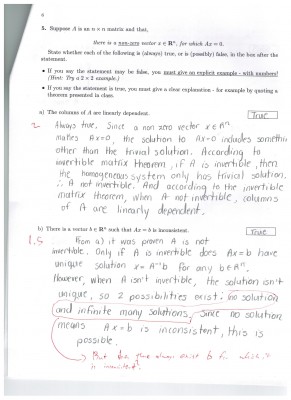 6
5. Suppose A is an n × n matrix and that,
there is a non-zero vector x ∈ Rⁿ, for which Ax = 0.
State whether each of the following is (always) true, or is (possibly) false, in the box after the
statement.
• If you say the statement may be false, you must give an explicit example - with numbers!
(Hint: Try a 2 × 2 example.)
• If you say the statement is true, you must give a clear explanation - for example by quoting a
theorem presented in class.
a) The columns of A are linearly dependent. True
2. Always true. Since a non zero vector x ∈ Rⁿ
makes Ax=0, the solution to Ax=0 includes something
other than the trivial solution. According to
invertible matrix theorem, if A is invertible, then
the homogeneous system only has trivial solution.
∴ A not invertible. And according to the invertible
matrix theorem, when A not invertible, columns
of A are linearly dependent.
b) There is a vector b ∈ Rⁿ such that Ax = b is inconsistent. True
1.5 From a) it was proven A is not
invertible. Only if A is invertible does Ax=b have
unique solution x=A⁻¹b for any b∈Rⁿ.
However, when A isn't invertible, the solution isn't
unique, so 2 possibilities exist: no solution
and infinite many solutions. Since no solution
means Ax=b is inconsistent, this is
possible.
But there always exist b for which
is inconsistent.